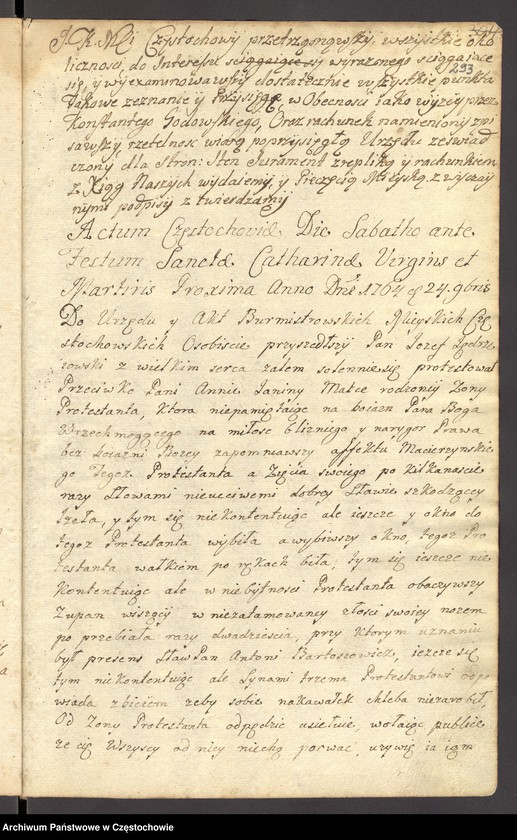 J. K. Mci Częstochowy przetrząsnąwszy wszystkie oko
liczności, do Interesu wyrażonego sciągaiące
293
się, y wyexaminowawszy dostatecznie wszystkie punkta
Takowe zeznanie y Przysięgę w Obecności iako wyżey przez
Konstantego Godowskiego, Oraz rachunek namieniony zpi
sawszy, rzetelnosc wiarą poprzysięgłą Urzędu zeswiad
czony dla Stron: Sten Jurament z repliką y rachunkiem
z Xiąg Naszych wydaiemy, y Pieczęcią Mieyską z wyczay
nymi podpisy ztwierdzamy
Actum Częstochoviæ Die Sabatho ante
Festum Sanctæ Catharinæ Virginis et
Martiris Proxima Anno Dni 1764 24. 9bris
Do Urzędu y Akt Burmistrowskich Mieyskich Czę
stochowskich Osobiscie przyszedłszy Pan Jozef
z wielkim serca żalem solennie się protestował
Przeciwko Pani Annie Janiny Matce rodzoniy Zony
Protestanta, ktora niepamiętaiąc na boiazn Pana Boga
Wrzechmogącego na miłosc blizniego y narygor Prawa
bez boiazni Bozey zapomniawszy affektu Macierzynskie
go Tegoz Protestanta a Zięcia swoiego po kilkanascie
razy słowami nieucciwemi dobrey sławie szkodzący
, y tym się niekontentuiąc ale ieszcze y okno do
tegoz Protestanta wybiła a wybiwszy okno, tegoz Pro
testanta wałkiem po rękach biła, tym się ieszcze nie
kontentuiąc ale w niebytnosci Protestanta obaczywszy
Zupan wiszący w niezatamowaney złosci swoiey nozem
go przebiała razy dwadziescia, przy ktorym uznaniu
był presens Sław Pan Antoni Bartoszewicz, ieszcze się
tym nie kontentuiąc ale Synami trzema Protestantowi
zbiciem zeby sobie nakawałek chleba niezarobił,
Od Zony Protestanta odpędzic usiełuie, wołaiąc publice
ze cię Wszyscy od niey niechą porwac, urywię ia
Archiwum Państwowe w Częstochowie